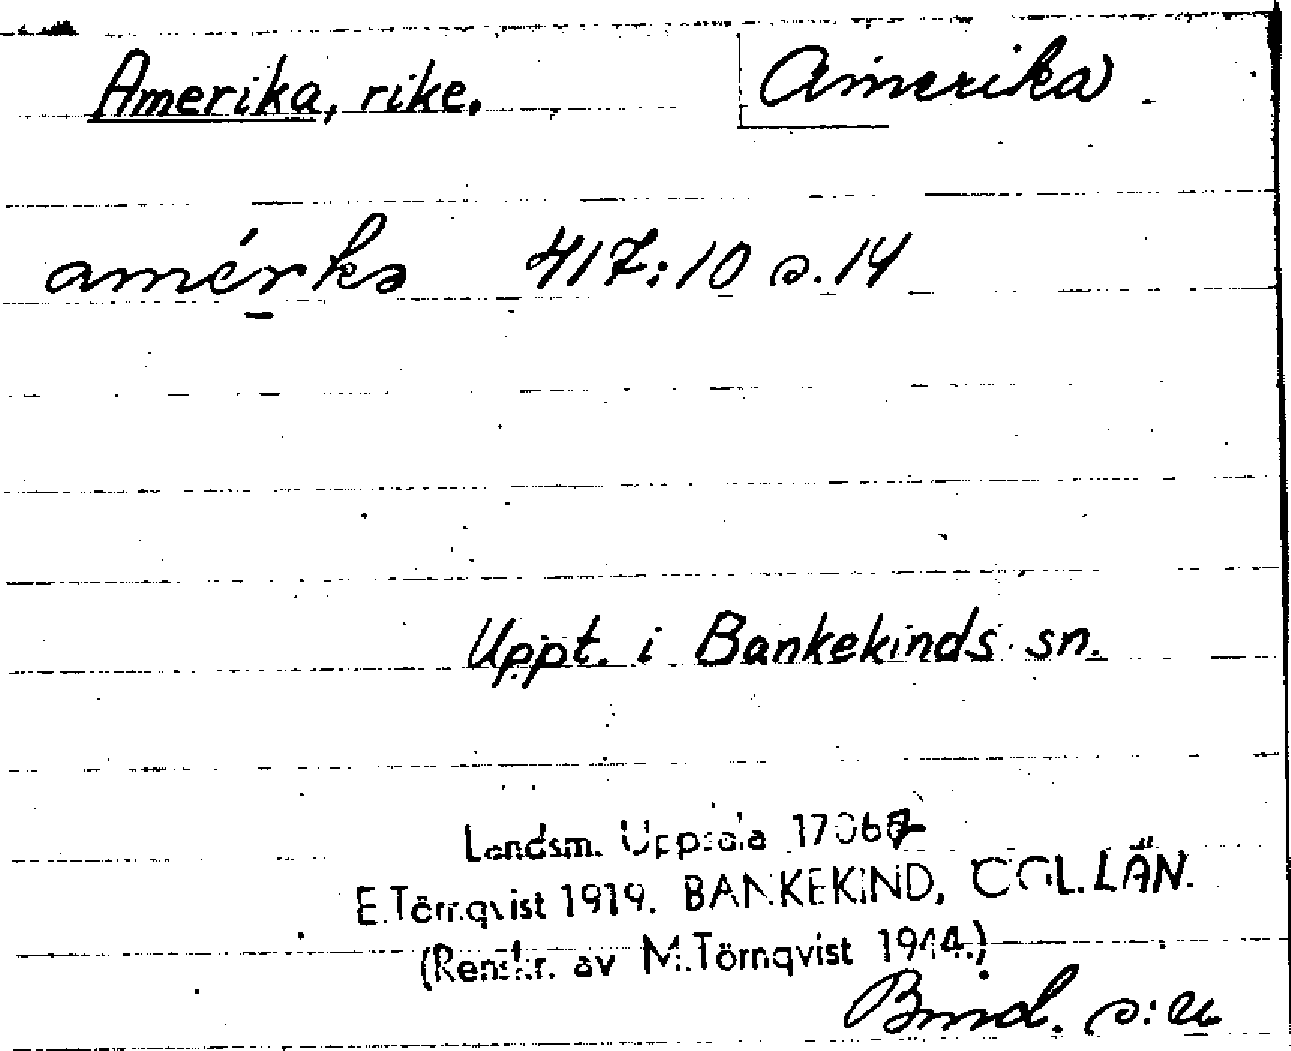 Amerika, rike. Amerika
amérka 417:10 s. 14
Uppt. i Bankekinds sn.
Landsm. Uppsala 17067
E. Törnqvist 1919. BANKEKIND, ÖGL. LÄN.
(Renskr. av M. Törnqvist 1944.)